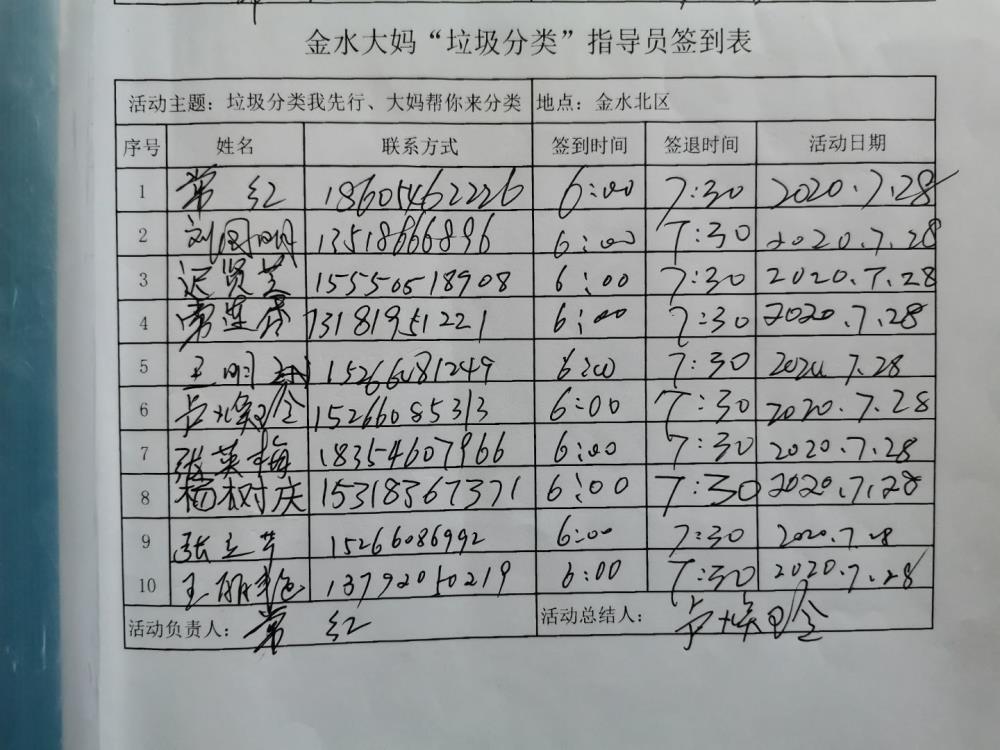 金水大妈“垃圾分类”指导员签到表
活动主题：垃圾分类我先行、大妈帮你来分类 地点：金水北区
序号 姓名 联系方式 签到时间 签退时间 活动日期
1 常红 18605462226 6:00 7:30 2020.7.28
2 刘国明 13518666896 6:00 7:30 2020.7.28
3 迟贤芝 15550518908 6:00 7:30 2020.7.28
4 常连香 13181951221 6:00 7:30 2020.7.28
5 王明 15266081249 6:00 7:30 2020 7.28
6 卢焕金 15266085313 6:00 7:30 2020.7.28
7 张英梅 18354607966 6:00 7:30 2020.7.28
8 杨树庆 15318367371 6:00 7:30 2020.7.28
9 张立芹 15266086992 6:00 7:30 2020.7.28
10 王丽艳 13792050219 6:00 7:30 2020.7.28
活动负责人：常红 活动总结人：卢焕金